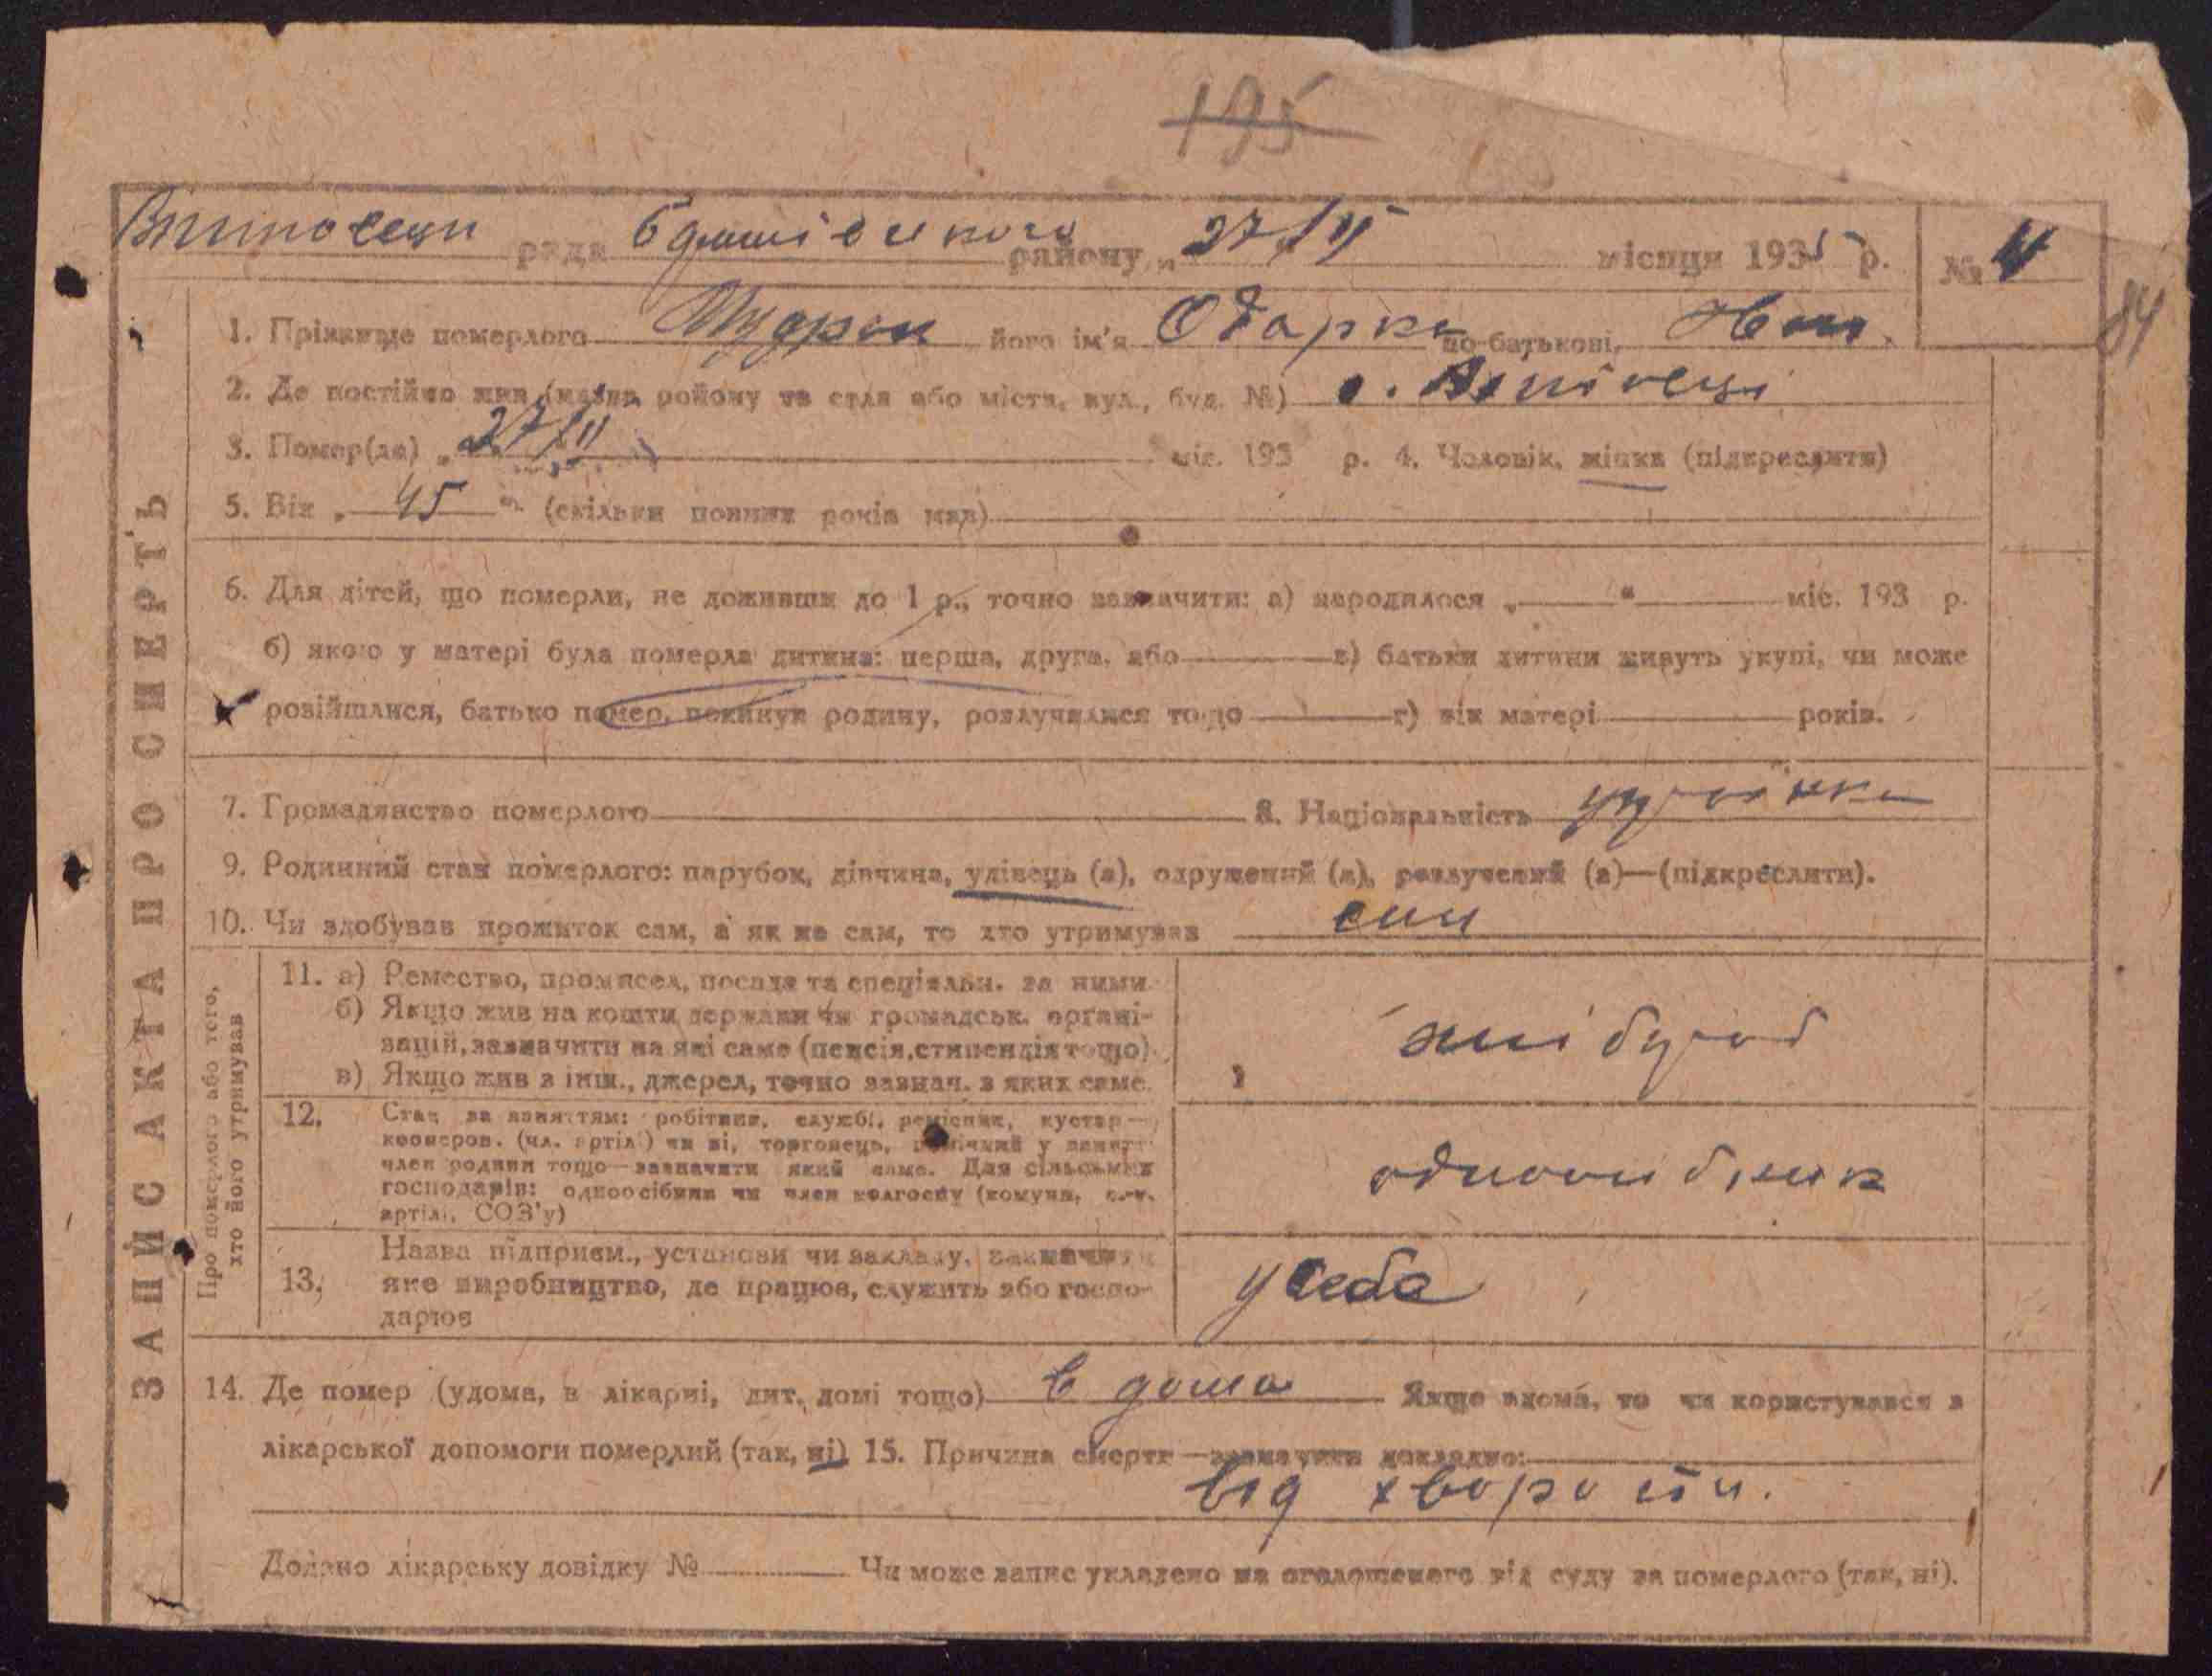 195
рада району „ 27/II місяця 1935 р. № 4
84
1. Прізвище померлого його ім'я Одарка по-батькові,
2. Де постійно жив (назва району та села або міста, вул., буд. №) с.
3. Помер(ла) „ 27/II міс. 193 р. 4. Чоловік, жінка (підкреслити)
5. Вік „ 45 " (скільки повних років мав)
6. Для дітей, що померли, не доживши до 1 р., точно зазначити: а) народилося „ " міс. 193 р.
б) якою у матері була померла дитина: перша, друга, або в) батьки дитини живуть укупі, чи може
розійшлися, батько помер, покинув родину, розлучилися тощо г) вік матері років.
7. Громадянство померлого 8. Національність
9. Родинний стан померлого: парубок, дівчина, удівець (а), одружений (а), розлучений (а)—(підкреслити).
10. Чи здобував прожиток сам, а як не сам, то хто утримував син
ЗАПИС АКТА ПРО СМЕРТЬ
Про померлого або того,
хто його утримував
11. а) Ремество, промисел, посада та спеціяльн. за ними
б) Якщо жив на кошти держави чи громадськ. органі-
зацій, зазначити на які саме (пенсія, стипендія тощо)
в) Якщо жив з інш., джерел, точно зазнач. з яких саме.
хлібороб
12. Стан за заняттям: робітник, службі, ремісник, кустар—
кооперов. (чл. артілі) чи ні, торговець, у занятт
член родини тощо—зазначити який саме. Для сільських
господарів: одноосібник чи член колгоспу (комуни, с.-г.
артілі, СОЗ'у)
одноосібник
13. Назва підприєм., установи чи закладу, зазначити
яке виробництво, де працює, служить або госпо-
дарює
у себе
14. Де помер (удома, в лікарні, дит. домі тощо) в дома Якщо вдома, то чи користувався з
лікарської допомоги померлий (так, ні) 15. Причина смерти—зазначити докладно:
від хворости.
Додано лікарську довідку № Чи може запис укладено на оголошеного від суду за померлого (так, ні).